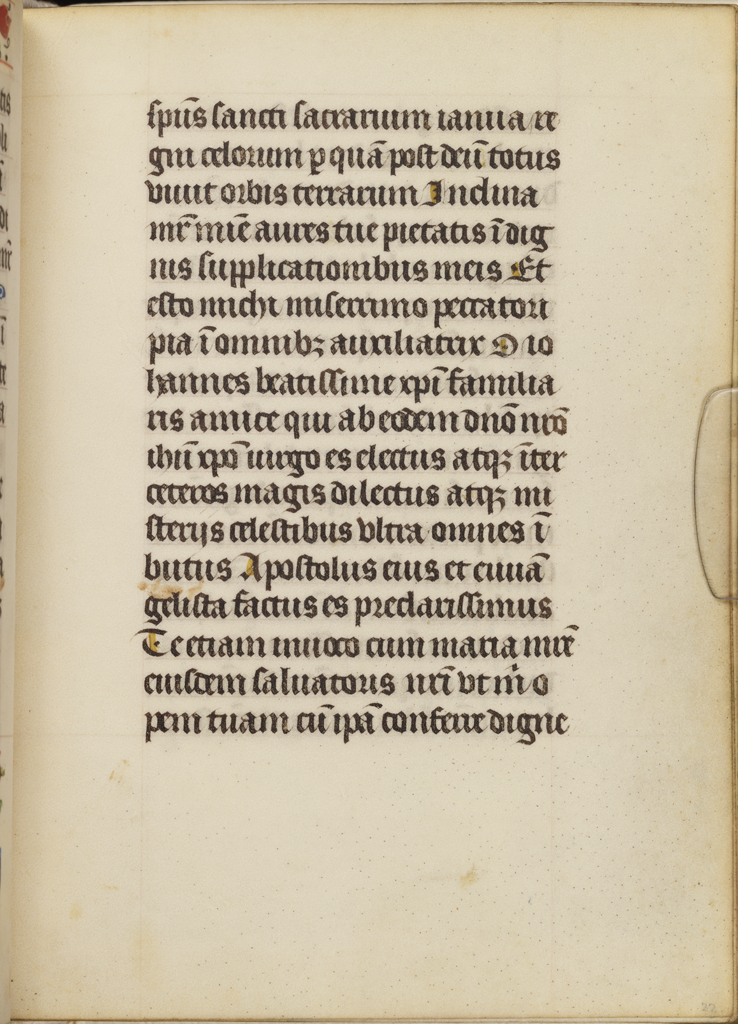 sp̄us sancti sacrarium ianua re
gni celorum ꝑ quā post deū totus
viuit orbis terrarum Inclina
mr̄ mīe aures tue pietatis īdig
nis supplicationibus meis Et
esto michi miserrimo peccatori
pia ī omnibꝫ auxiliatrix O io
hannes beatissime xp̄i familia
ris amice qui ab eodem dn̄o nr̄o
ihū xp̄o uirgo es electus atqꝫ īter
ceteros magis dilectus atqꝫ mi
sterijs celestibus vltra omnes ī
butus Apostolus eius et euuā
gelista factus es preclarissimus
Te etiam inuoco cum maria mr̄e
eiusdem saluatoris nr̄i vt m̄ o
pem tuam cū ip̄a conferre digne
22